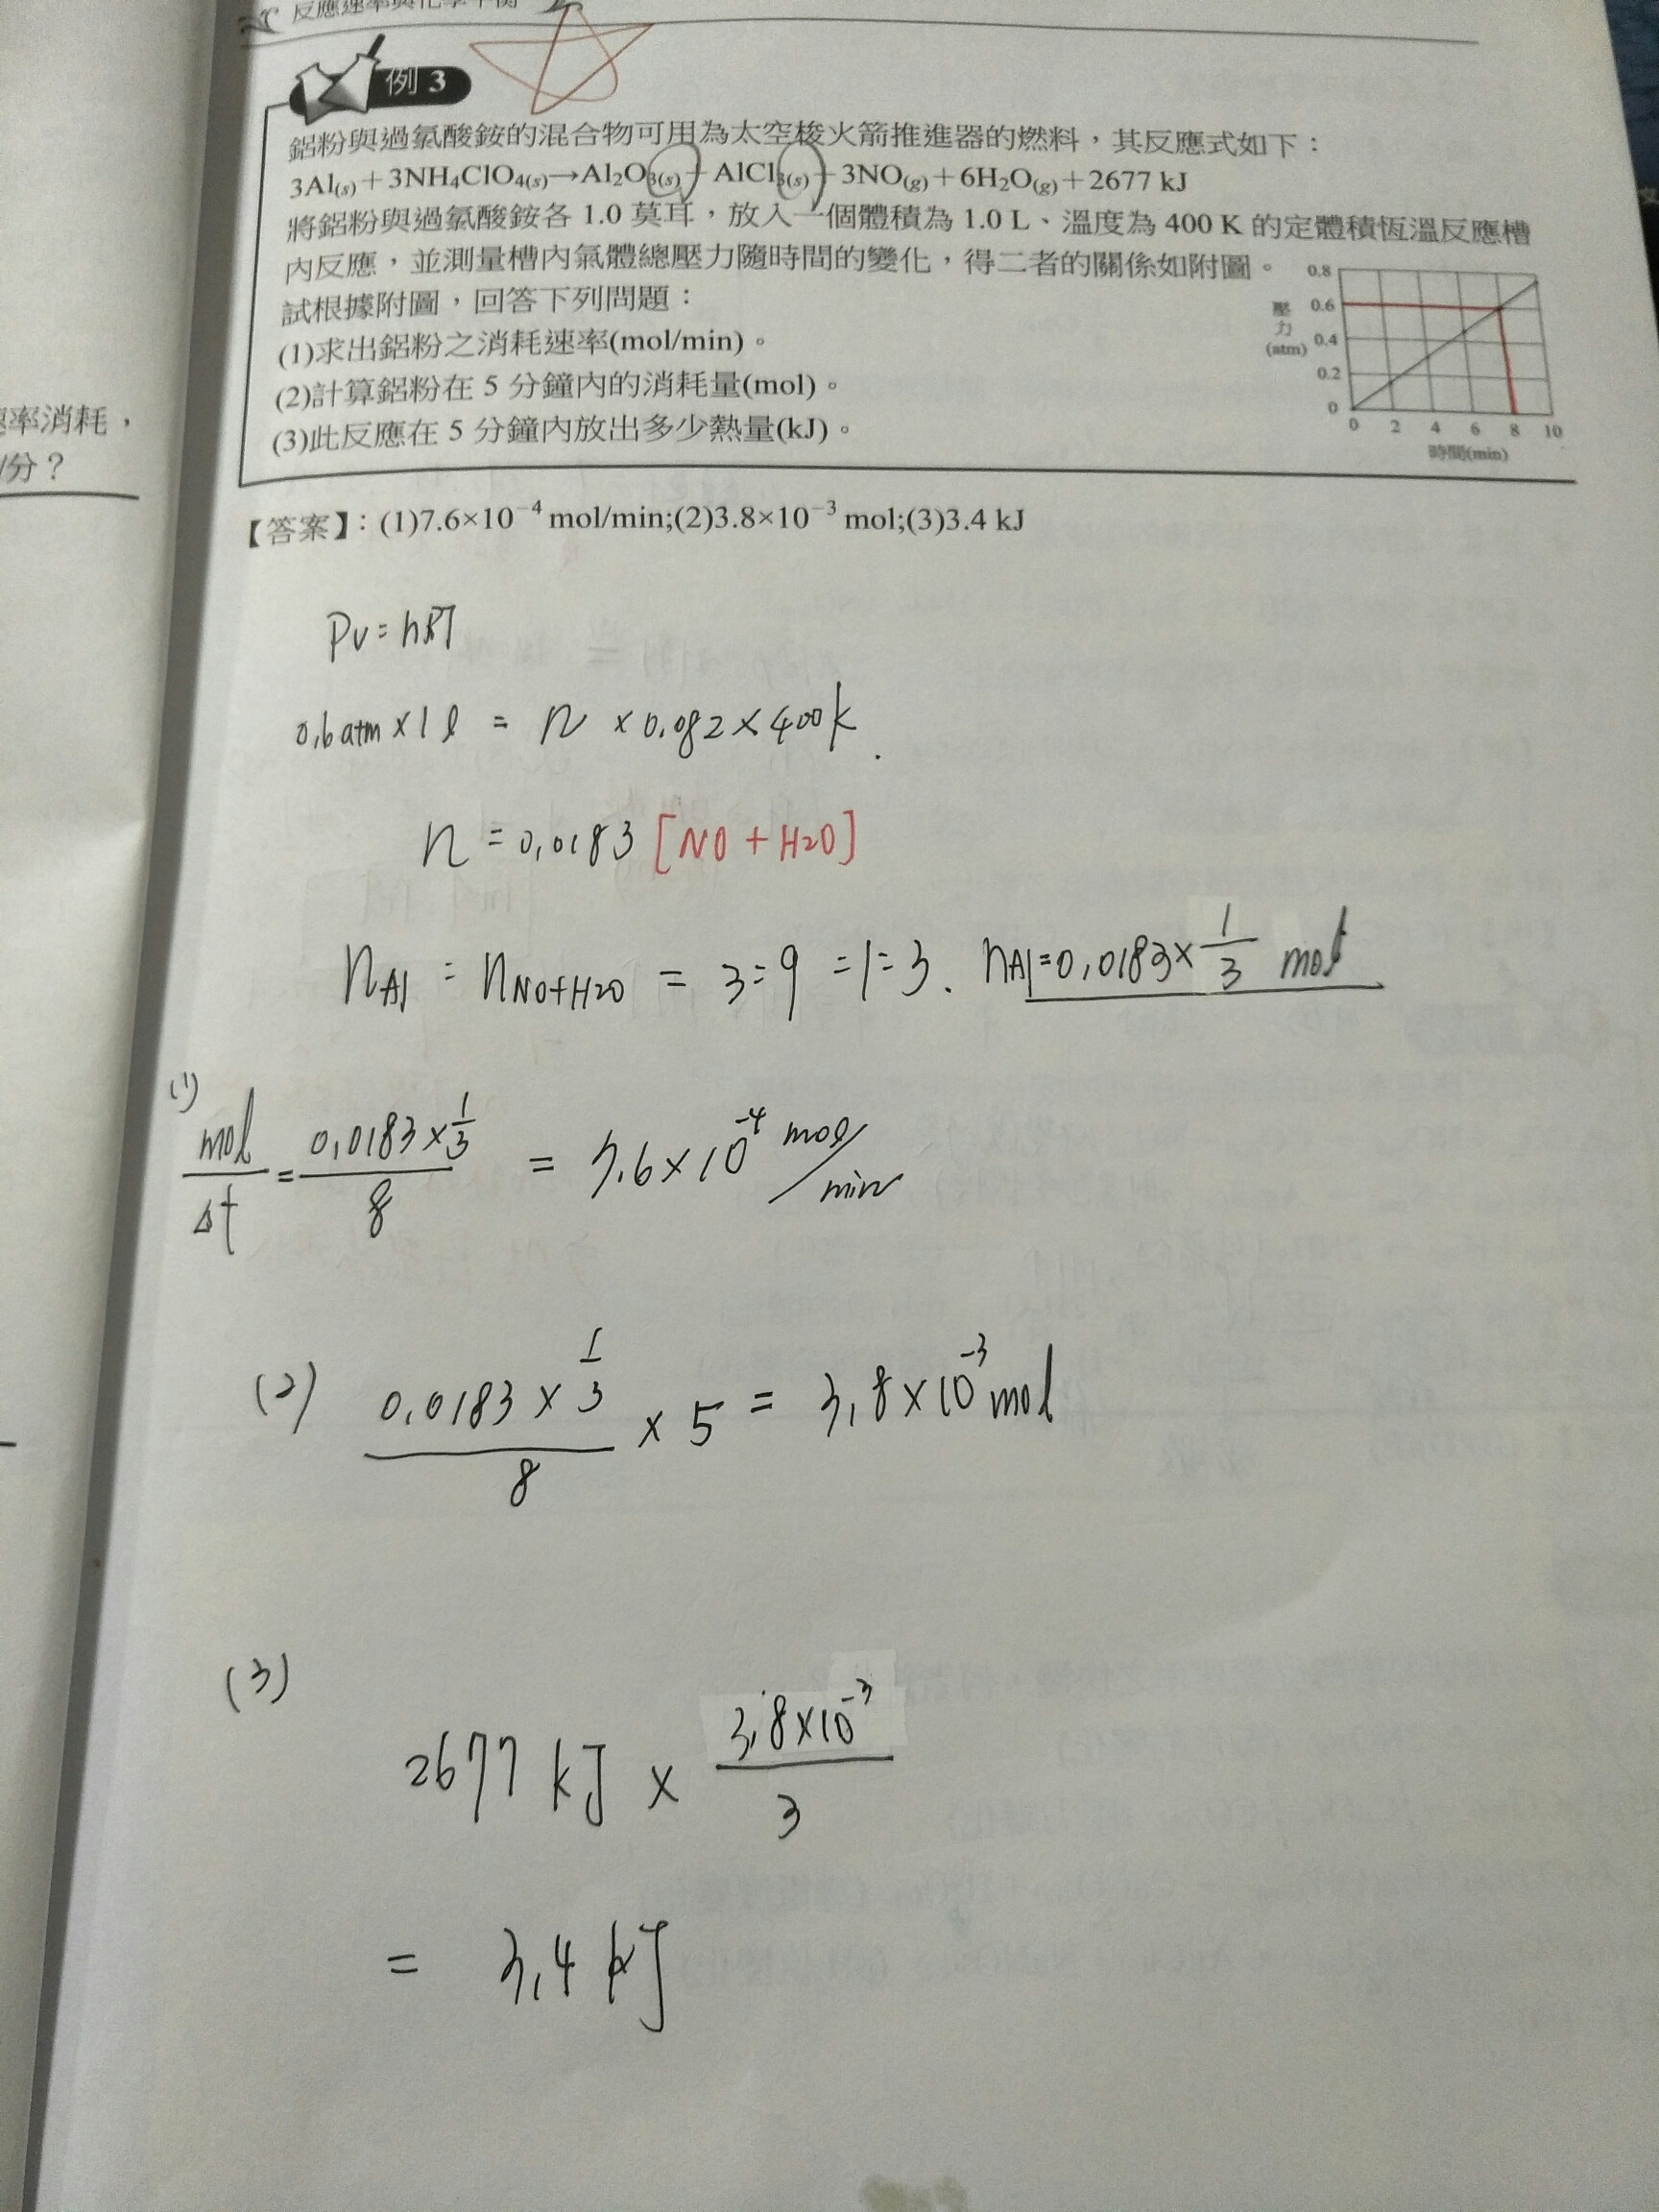 反應速率與化學平衡
例 3
鋁粉與過氯酸銨的混合物可用為太空梭火箭推進器的燃料，其反應式如下：
3Al(s)+3NH4ClO4(s)→Al2O3(s)+AlCl3(s)+3NO(g)+6H2O(g)+2677 kJ
將鋁粉與過氯酸銨各 1.0 莫耳，放入一個體積為 1.0 L、溫度為 400 K 的定體積恆溫反應槽
內反應，並測量槽內氣體總壓力隨時間的變化，得二者的關係如附圖。
試根據附圖，回答下列問題：
(1)求出鋁粉之消耗速率(mol/min)。
(2)計算鋁粉在 5 分鐘內的消耗量(mol)。
(3)此反應在 5 分鐘內放出多少熱量(kJ)。
0.8
0.6
0.4
0.2
0
壓力(atm)
0 2 4 6 8 10
時間(min)
率消耗，
/分？
【答案】：(1)7.6×10⁻⁴ mol/min;(2)3.8×10⁻³ mol;(3)3.4 kJ
PV=nRT
0.6atm×1ℓ = n ×0.082×400k.
n=0.0183 [NO+H2O]
nAl : nNO+H2O = 3:9 =1:3. nAl=0.0183×1/3 mol
(1)
mol/Δt = 0.0183×1/3 / 8 = 7.6×10⁻⁴ mol/min
(2) 0.0183×1/3 / 8 ×5 = 3.8×10⁻³ mol
(3)
2677 kJ × 3.8×10⁻³/3
= 3.4 kJ